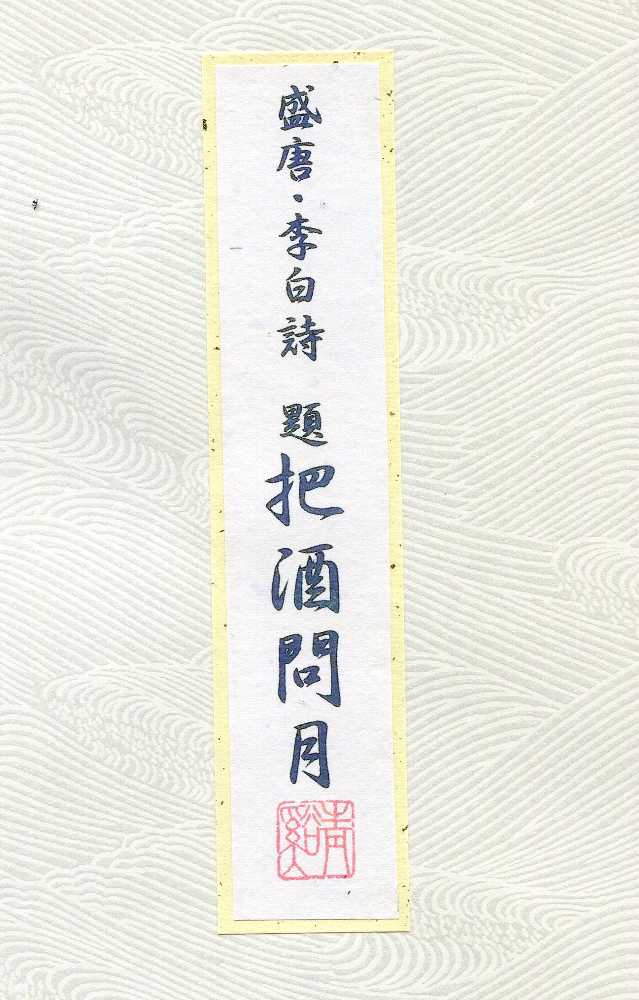 盛唐・李白詩 題把酒問月
青谿